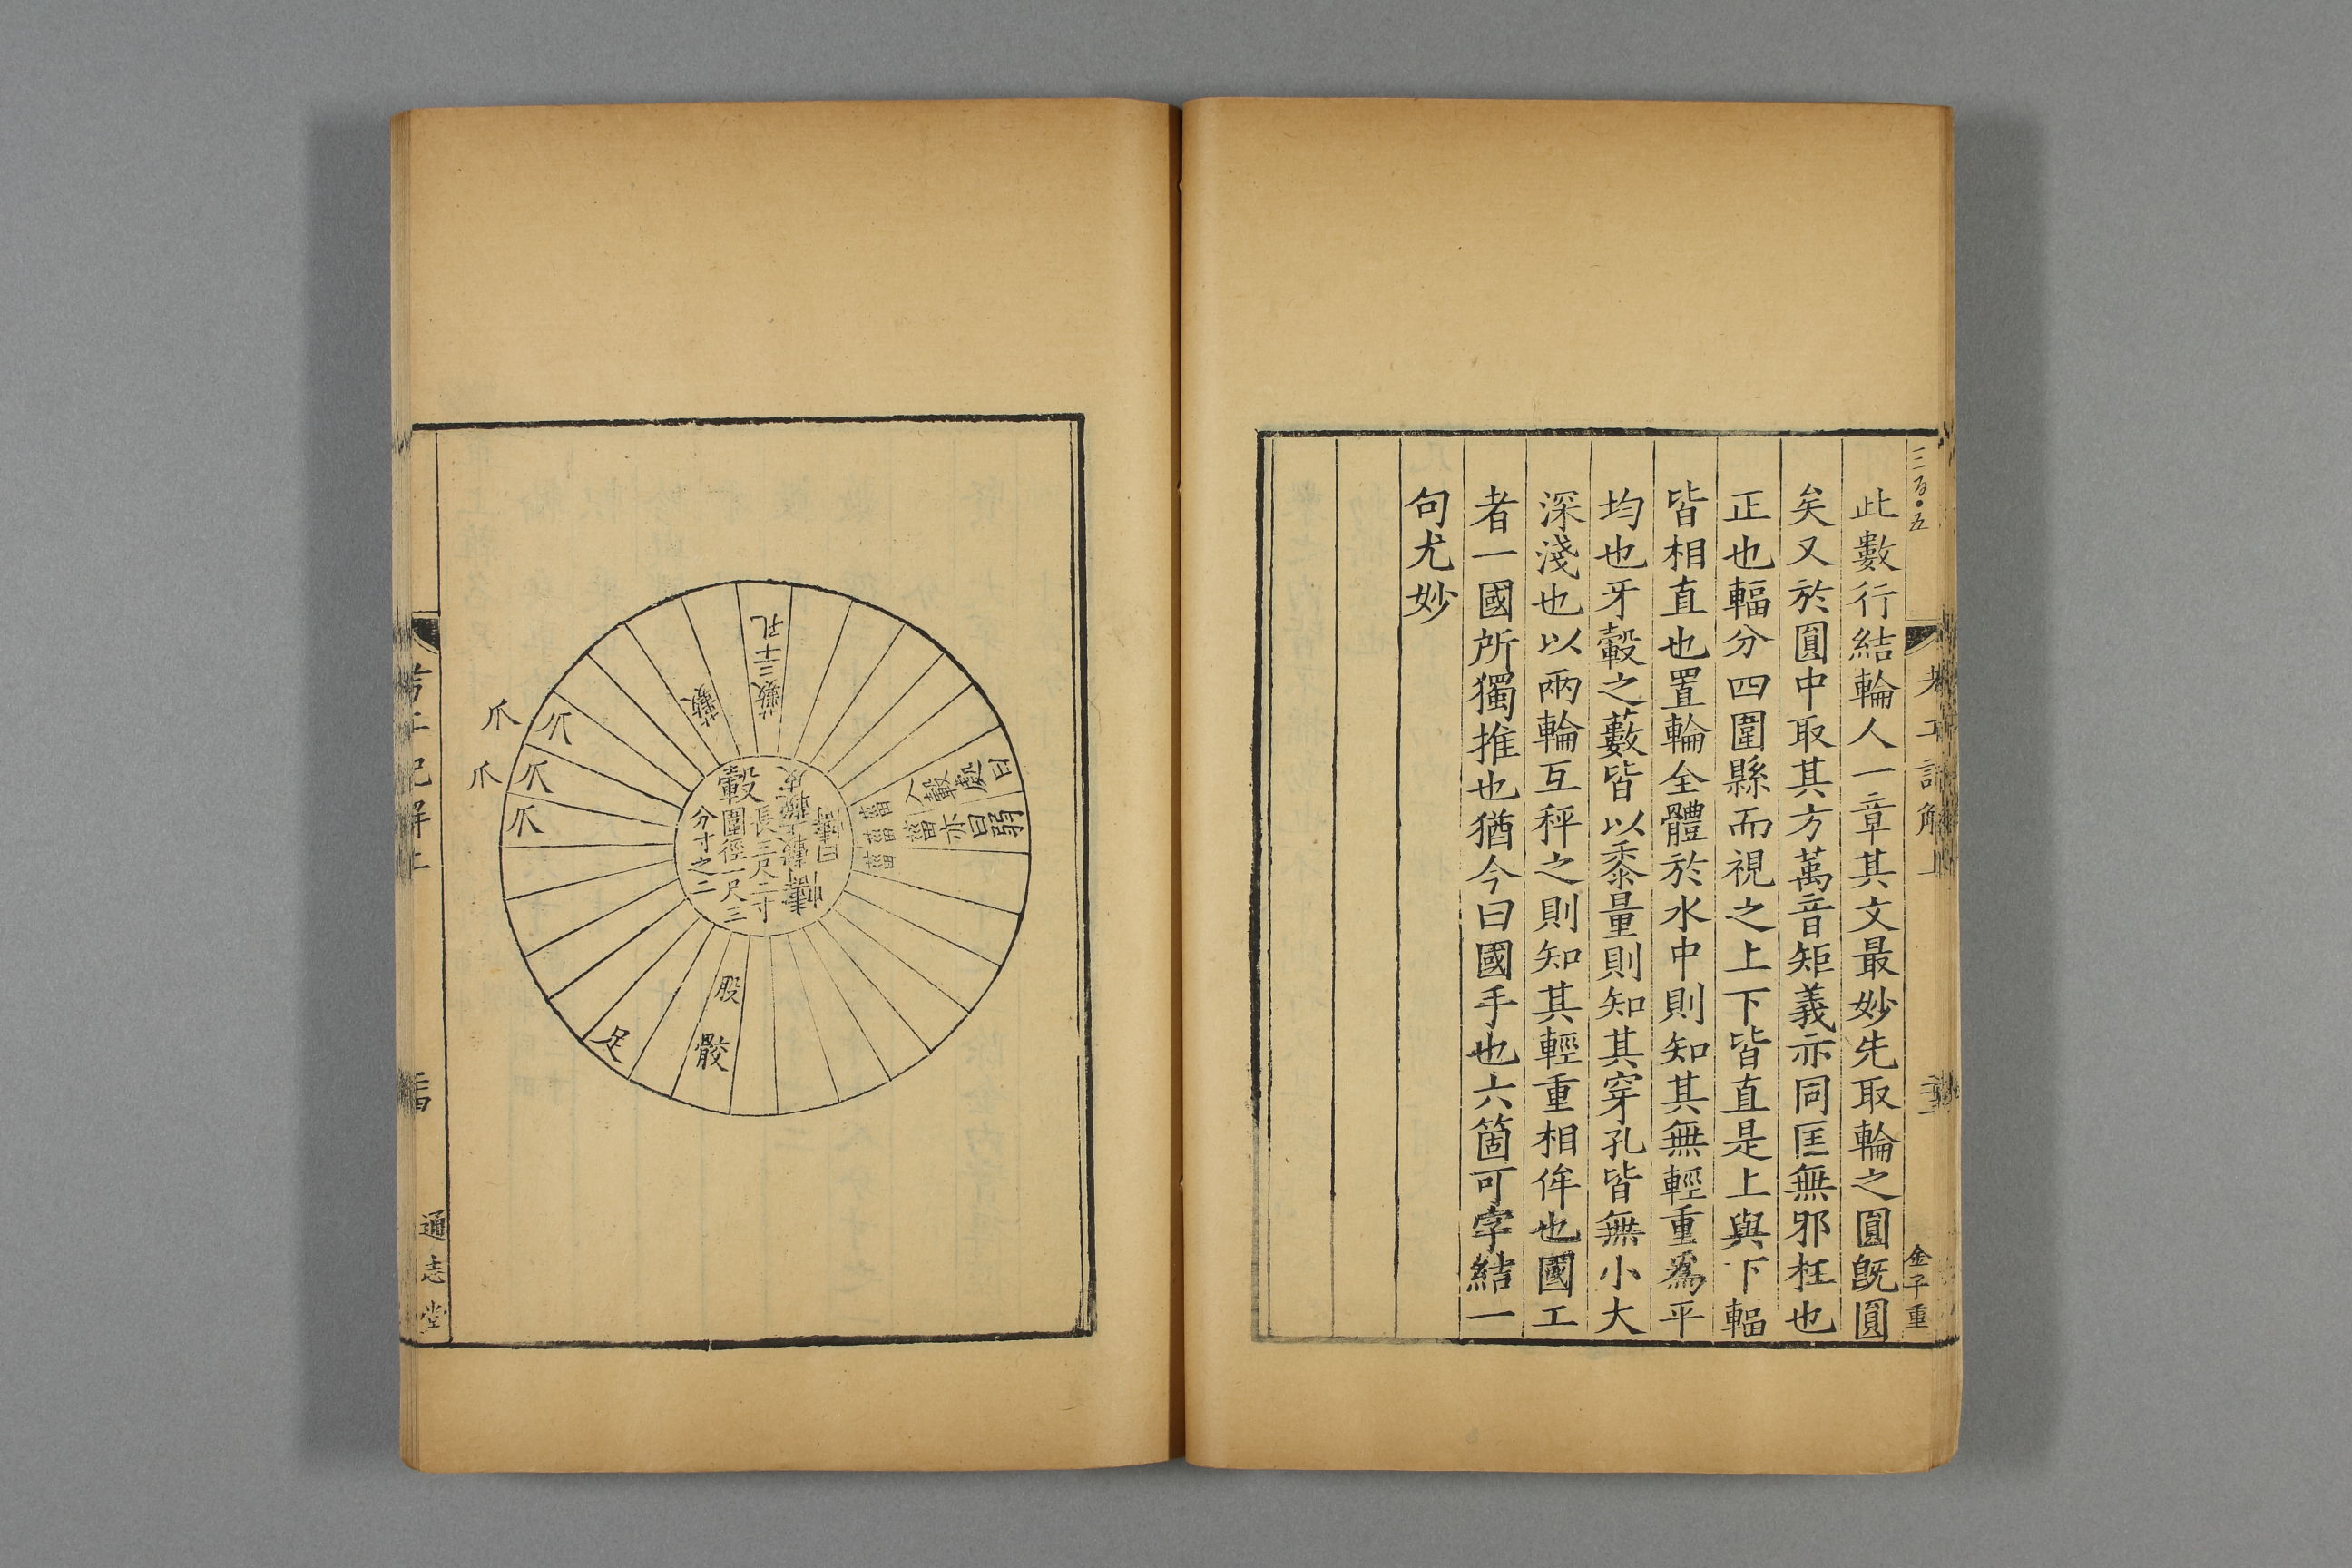 三百〇五
考工記解上
金子重
此數行結輪人一章其文最妙先取輪之圓旣圓
矣又於圓中取其方萬音矩義亦同匡無邪枉也
正也輻分四圍縣而視之上下皆直是上與下輻
皆相直也置輪全體於水中則知其無輕重爲平
均也牙轂之藪皆以黍量則知其穿孔皆無小大
深淺也以兩輪互秤之則知其輕重相侔也國工
者一國所獨推也猶今曰國手也六箇可字結一
句尤妙
藪三十孔
藪
爪
爪
爪
爪
爪
轂
長三尺二寸
圍徑一尺三
分寸之二
幬
菑菑菑
入轂處曰
菑亦曰弱
股
骹
足
考工記解上
通志堂